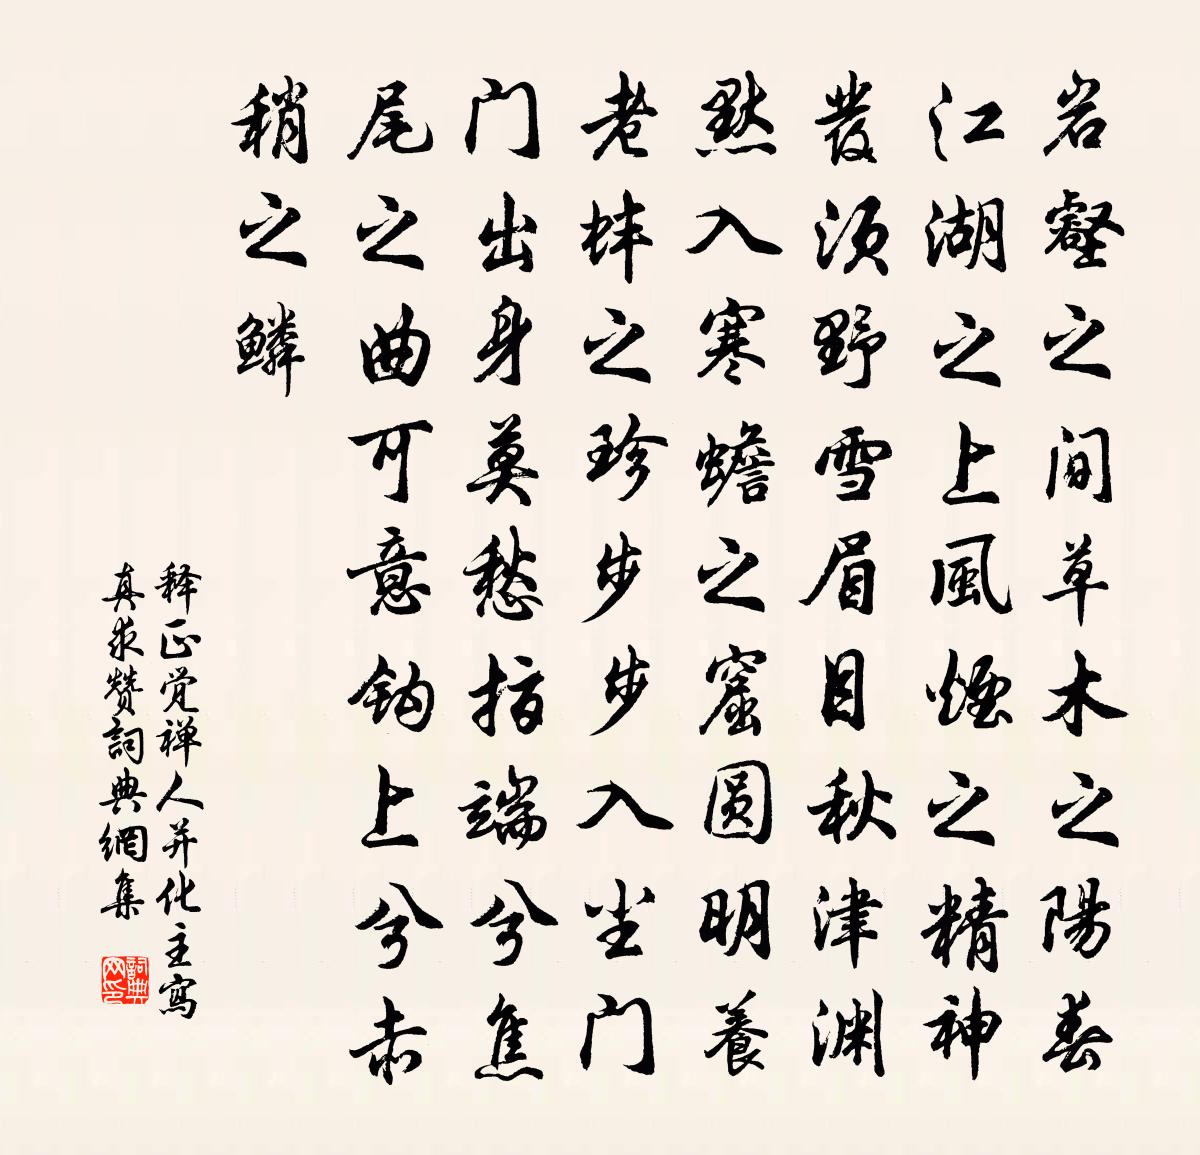 岩壑之间草木之陽春
江湖之上風煙之精神
發须野雪眉目秋津渊
默入寒蟾之窟圆明養
老蚌之珍步步入尘门
门出身莫愁指端兮焦
尾之曲可意钩上兮赤
稍之鳞
释正觉禅人并化主寫
真求赞詞典網集
詞典
网印